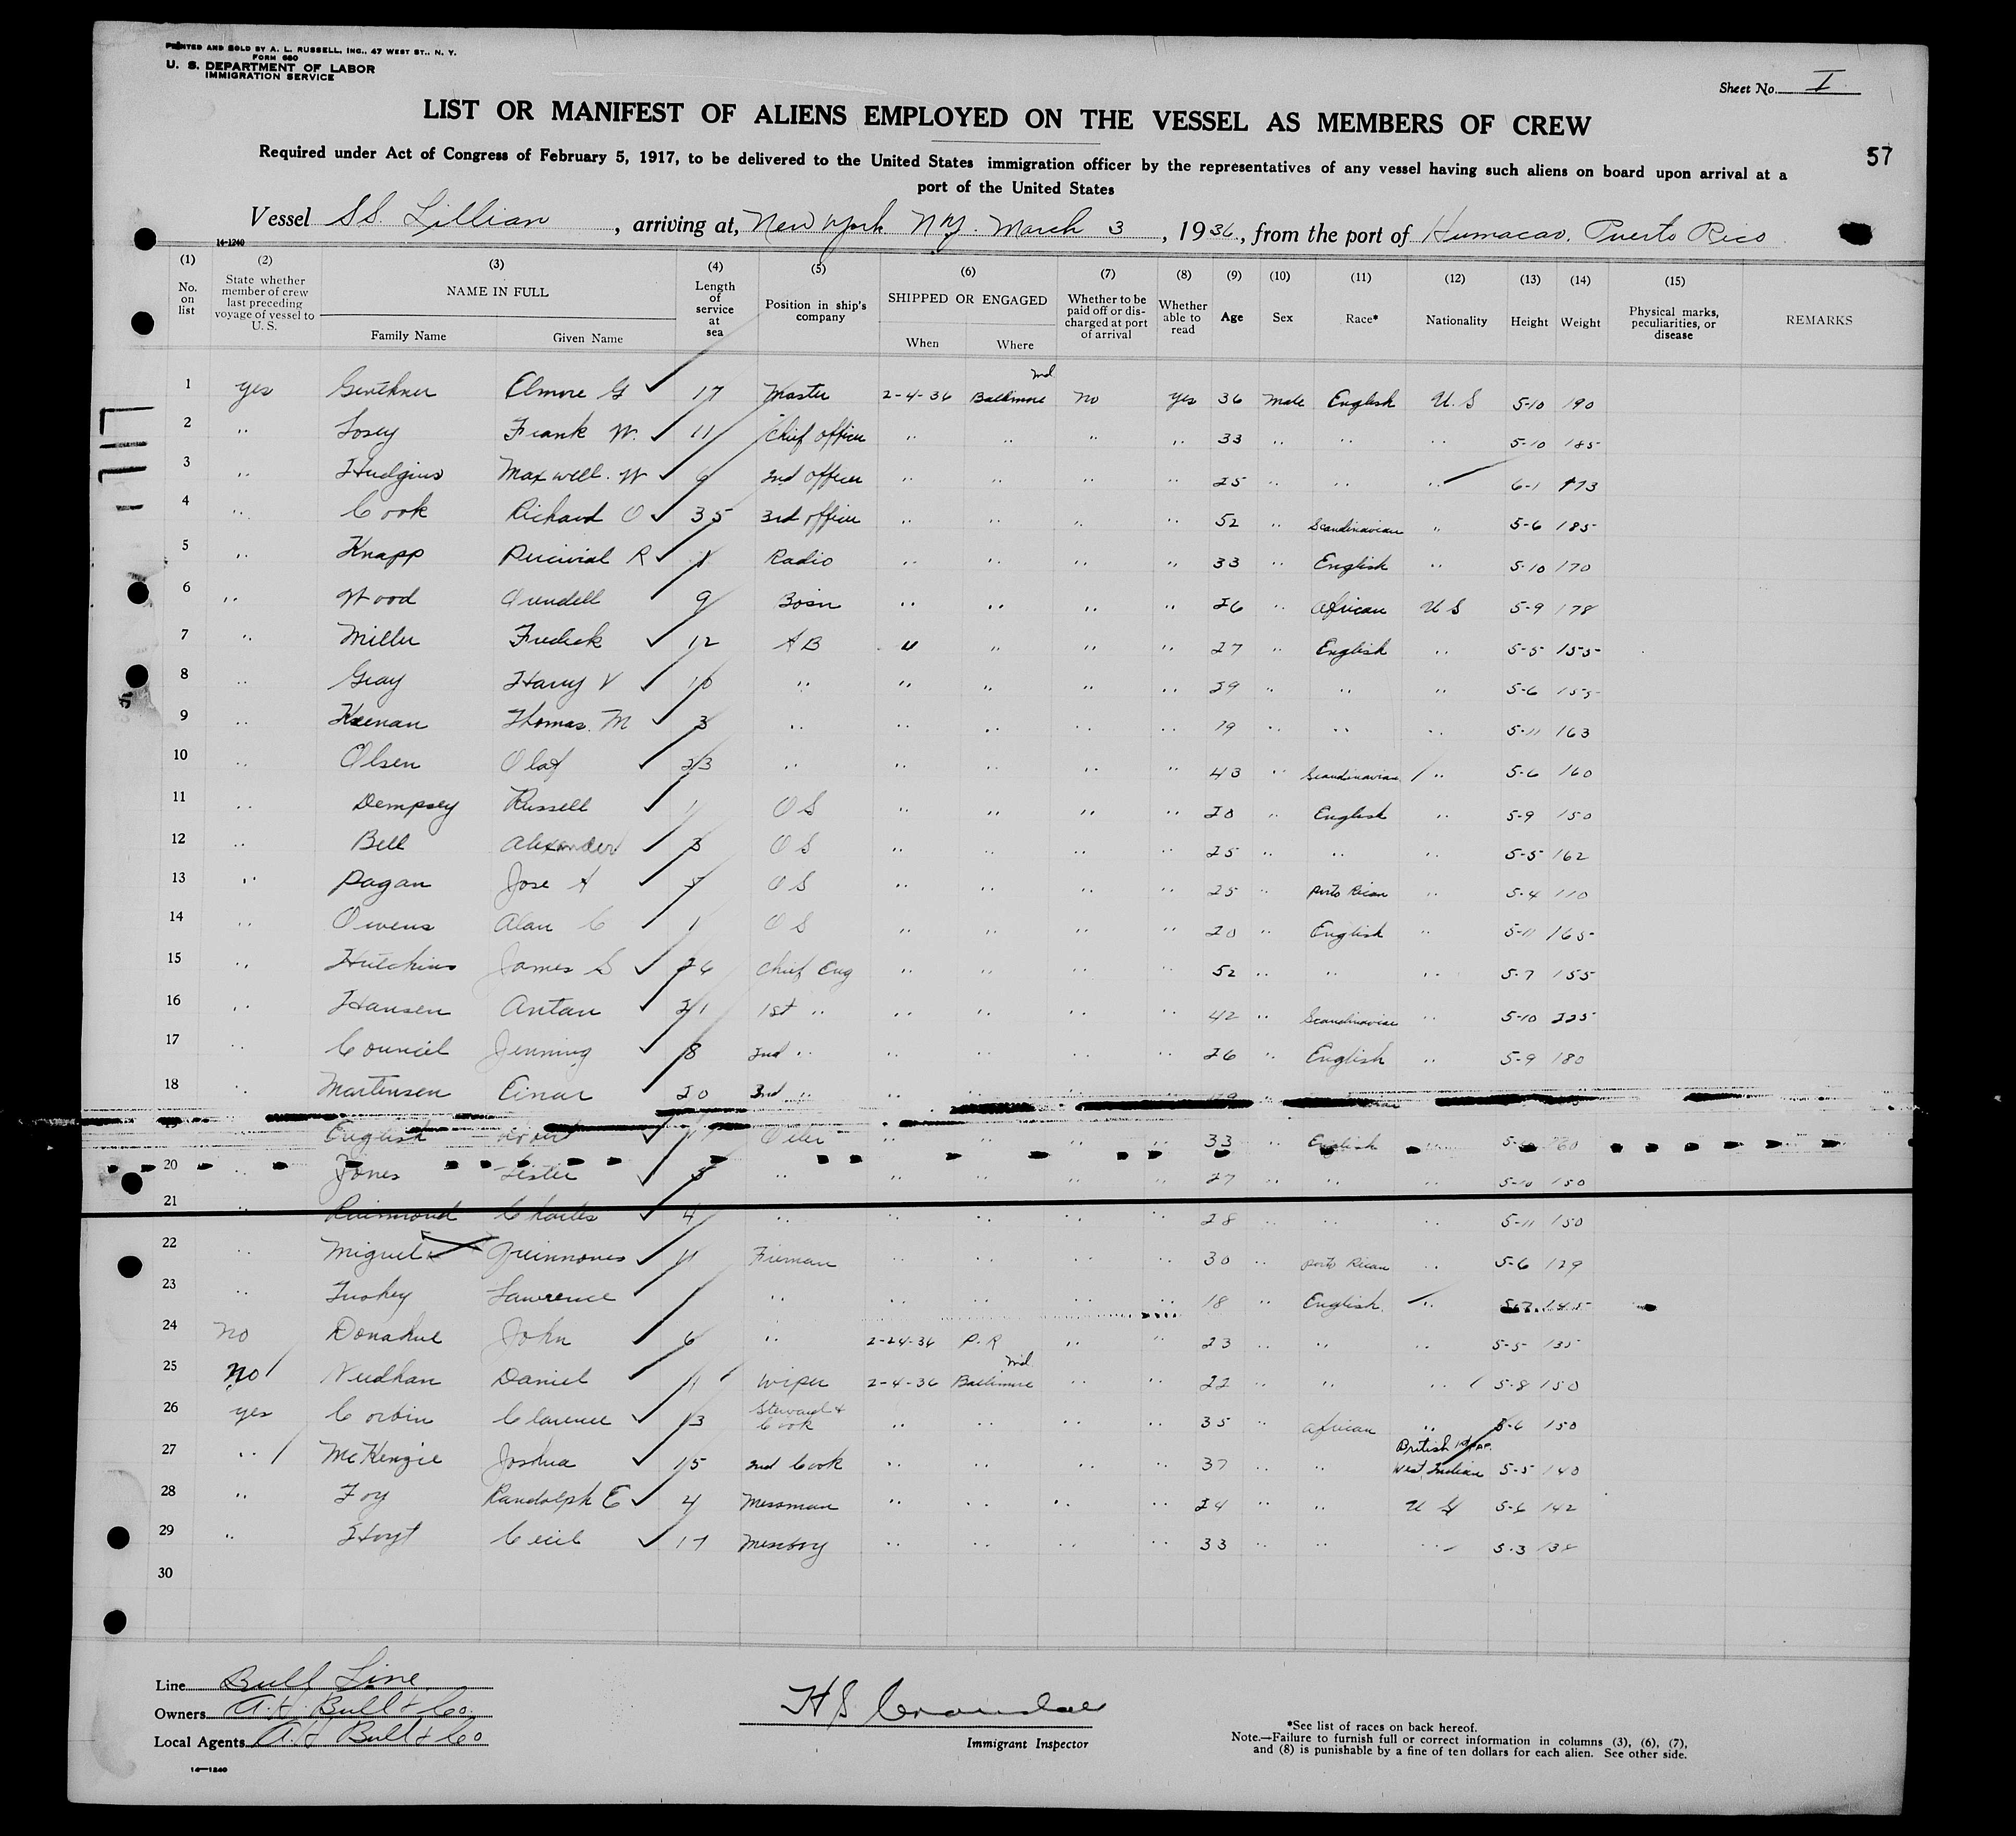 PRINTED AND SOLD BY A. L. RUSSELL, INC., 47 WEST ST., N. Y.
FORM 680
U. S. DEPARTMENT OF LABOR
IMMIGRATION SERVICE
Sheet No. I
LIST OR MANIFEST OF ALIENS EMPLOYED ON THE VESSEL AS MEMBERS OF CREW
57
Required under Act of Congress of February 5, 1917, to be delivered to the United States immigration officer by the representatives of any vessel having such aliens on board upon arrival at a
port of the United States
Vessel SS. Lillian, arriving at, New York N.Y. March 3, 1936, from the port of Humacao, Puerto Rico
14-1240
(1) (2) (3) (4) (5) (6) (7) (8) (9) (10) (11) (12) (13) (14) (15)
No. on list State whether member of crew last preceding voyage of vessel to U. S. NAME IN FULL Family Name Given Name Length of service at sea Position in ship's company SHIPPED OR ENGAGED When Where Whether to be paid off or discharged at port of arrival Whether able to read Age Sex Race* Nationality Height Weight Physical marks, peculiarities, or disease REMARKS
1 yes Elmore G 17 Master 2-4-36 Baltimore Md No yes 36 Male English U.S 5-10 190
2 " Losey Frank W. 11 Chief officer " " " " 33 " " " 5-10 185
3 " Hudgins Maxwell. W 6 2nd officer " " " " 25 " " " 6-1 173
4 " Cook Richard O 35 3rd officer " " " " 52 " Scandinavian " 5-6 185
5 " Knapp Percivial R 1 Radio " " " " 33 " English " 5-10 170
6 " Wood Arundell 9 Bosn " " " " 26 " African U S 5-9 178
7 " Miller Fredick 12 A B " " " " 27 " English " 5-5 155
8 " Gray Harry V 10 " " " " " 29 " " " 5-6 155
9 " Keenan Thomas. M 3 " " " " " 19 " " " 5-11 163
10 " Olsen Olaf 23 " " " " " 43 " Scandinavian " 5-6 160
11 " Dempsey Russell 1 O S " " " " 20 " English " 5-9 150
12 " Bell Alexander 3 O S " " " " 25 " " " 5-5 162
13 " Pagan Jose A 5 O S " " " " 25 " Porto Rican " 5-4 110
14 " Owens Alan C 1 O S " " " " 20 " English " 5-11 165
15 " Hutchins James S 26 Chief Eng " " " " 52 " " " 5-7 155
16 " Hansen Antan 21 1st " " " " " 42 " Scandinavian " 5-10 225
17 " Council Jenning 8 2nd " " " " " 26 " English " 5-9 180
18 " Martensen Einar 20 3rd "
English Oiler " " " " 33 " English " 160
20 " Jones Lester 3 " " " " " 27 " " " 5-10 150
21 " Charles 4 " " " " " 28 " " " 5-11 150
22 " Miguel Quinnones 11 Fireman " " " " 30 " Porto Rican " 5-6 129
23 " Lawrence " " " " " 18 " English " 5-7 145
24 no Donahue John 6 " 2-24-36 P.R " " 23 " " " 5-5 135
25 no Needhan Daniel 1 Wiper 2-4-36 Baltimore Md. " " 22 " " " 5-8 150
26 yes Corbin Clarence 13 Steward & Cook " " " " 35 " African " 5-6 150
27 " McKenzie Joshua 15 2nd Cook " " " " 37 " " British West Indian 5-5 140
28 " Foy Randolph E 4 Messman " " " " 24 " " U S 5-6 142
29 " Hoyt Cecil 17 Messboy " " " " 33 " " " 5-3 138
30
Line Bull Line
Owners A. H. Bull & Co.
Local Agents A. H Bull & Co
14-1240
H S
Immigrant Inspector
*See list of races on back hereof.
Note.—Failure to furnish full or correct information in columns (3), (6), (7),
and (8) is punishable by a fine of ten dollars for each alien. See other side.